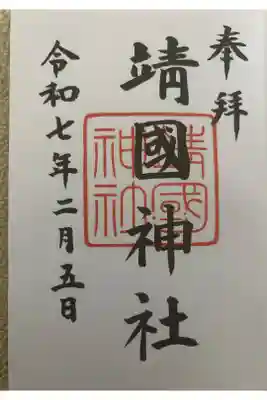 奉拝
靖國神社
靖國
神社
令和七年二月五日